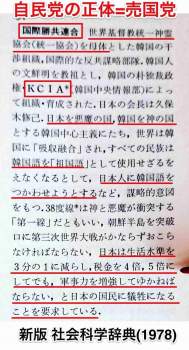 自民党の正体=売国党
国際勝共連合 世界基督教統一神霊
協会(統一協会)を母体とした韓国の干
渉組織,国際的な反共謀略部隊。韓国人
の文鮮明を教祖とし,韓国の朴独裁政
権・KCIA*(韓国中央情報部)によっ
て組織・育成された。日本の会長は久保
木修己。日本を悪魔の国,韓国を神の国
とする韓国中心主義にたち,世界は韓国
に「吸収合併」され,すべての民族は
韓国語を「祖国語」として使用せざるを
えなくなるとして,日本人に韓国語を
つかわせようとするなど,謀略的意図
をもつ。38度線*は神と悪魔が衝突する
「第一線」だともいい,朝鮮半島を突破
口に第三次世界大戦がかならずおこら
なければならない,日本は生活水準を
3分の1に減らし,税金を4倍,5倍に
してでも,軍事力を増強してゆかねば
ならない,と日本の国民に犠牲になる
ことを要求している。
新版 社会科学辞典(1978)